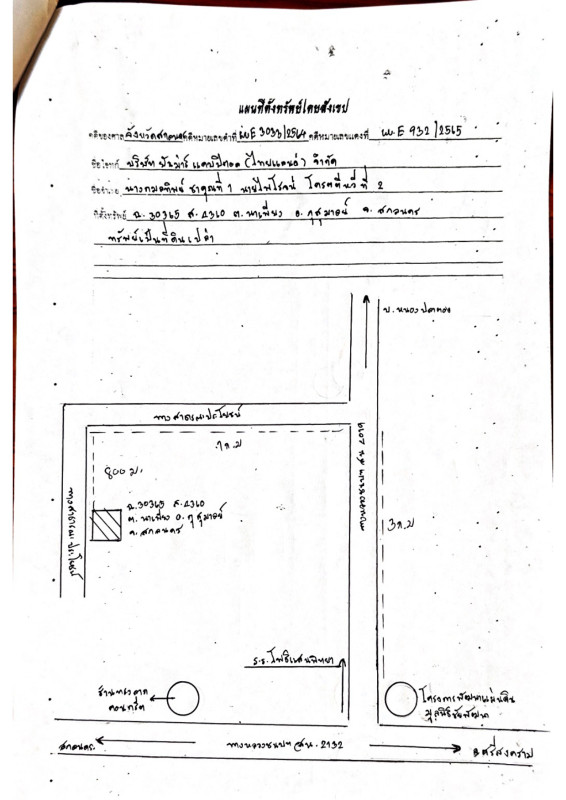 แผนที่ตั้งทรัพย์โดยสังเขป
คดีของศาล จังหวัดสกลนคร คดีหมายเลขดำที่ ผบ.E 3033/2564 คดีหมายเลขแดงที่ ผบ.E 932/2565
ชื่อโจทก์ บริษัท แคปปิตอล (ไทยแลนด์) จำกัด
ชื่อจำเลย ที่ 1 นายไพโรจน์ ที่ 2
ที่ตั้งทรัพย์ ฉ. 30365 ส. 2310 ต. นาเพียง อ. กุสุมาลย์ จ. สกลนคร
ทรัพย์เป็นที่ดินเปล่า
บ. หนองปลาดุก
ทางสาธารณประโยชน์
1 ก.ม
800 ม.
ทางสาธารณประโยชน์
ฉ. 30365 ส. 2310
ต. นาเพียง อ. กุสุมาลย์
จ. สกลนคร
3 ก.ม
ร.ร. โพธิแสนพิทยา
คอนกรีต
โครงการพัฒนาแม่ดิน
มูลนิธิชัยพัฒนา
สกลนคร
ทางหลวงชนบท สน. 2132
อ ศรีสงคราม